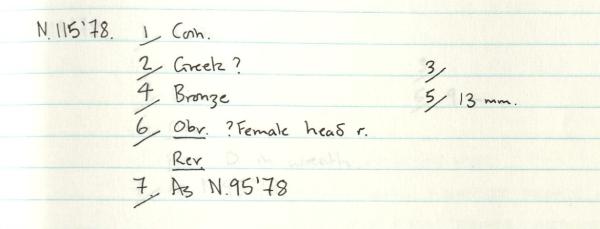 N.115'78. 1/ Coin.
2/ Greek ? 3/
4/ Bronze 5/ 13 mm.
6/ Obv. ?Female head r.
Rev.
7/ As N.95'78